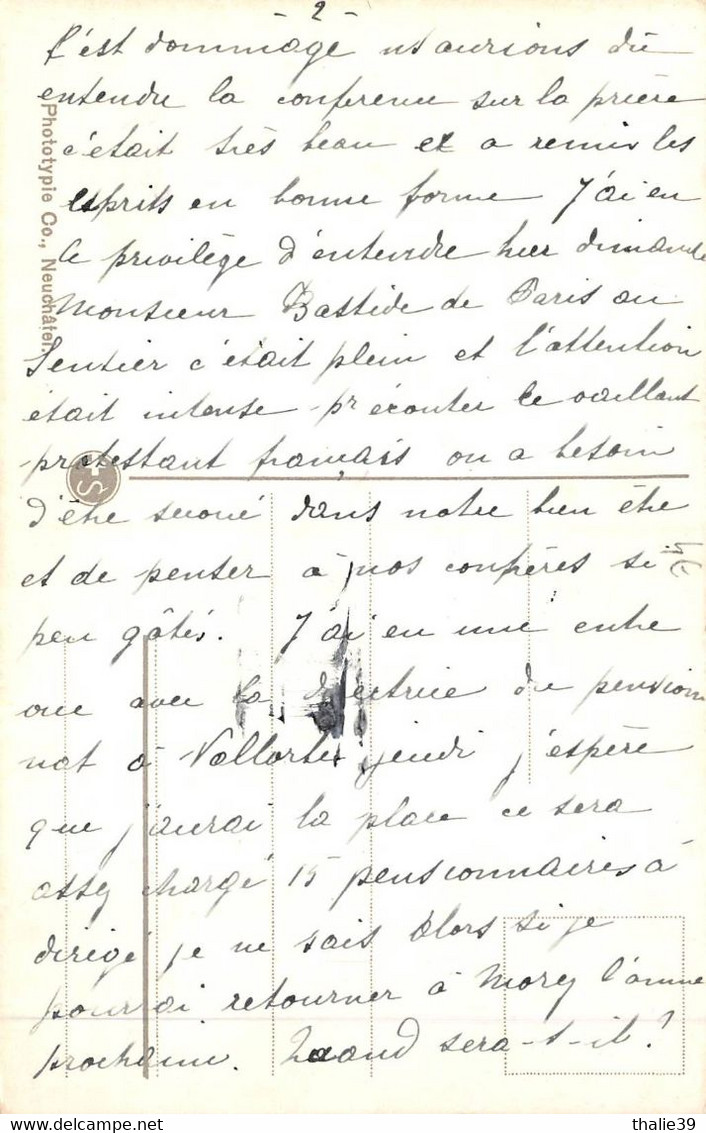 - 2 -
C'est dommage ns aurions dû
entendre la conférence sur la prière
c'était très beau et a remis les
esprits en bonne forme J'ai eu
le privilège d'entendre hier dimanche
Monsieur Bastide de Paris au
Sentier c'était plein et l'attention
était intense pr écouter ce vaillant
protestant français on a besoin
d'être secoué dans notre bien être
et de penser à nos confrères si
peu gâtés. J'ai eu une entre
vue avec la directrice du pension
nat à Vallorbes jeudi j'espère
que j'aurai la place ce sera
assez chargé 15 pensionnaires à
dirigé je ne sais alors si je
pourrai retourner à Morez l'année
prochaine. Quand sera-t-il?
Phototypie Co., Neuchâtel
thalie39